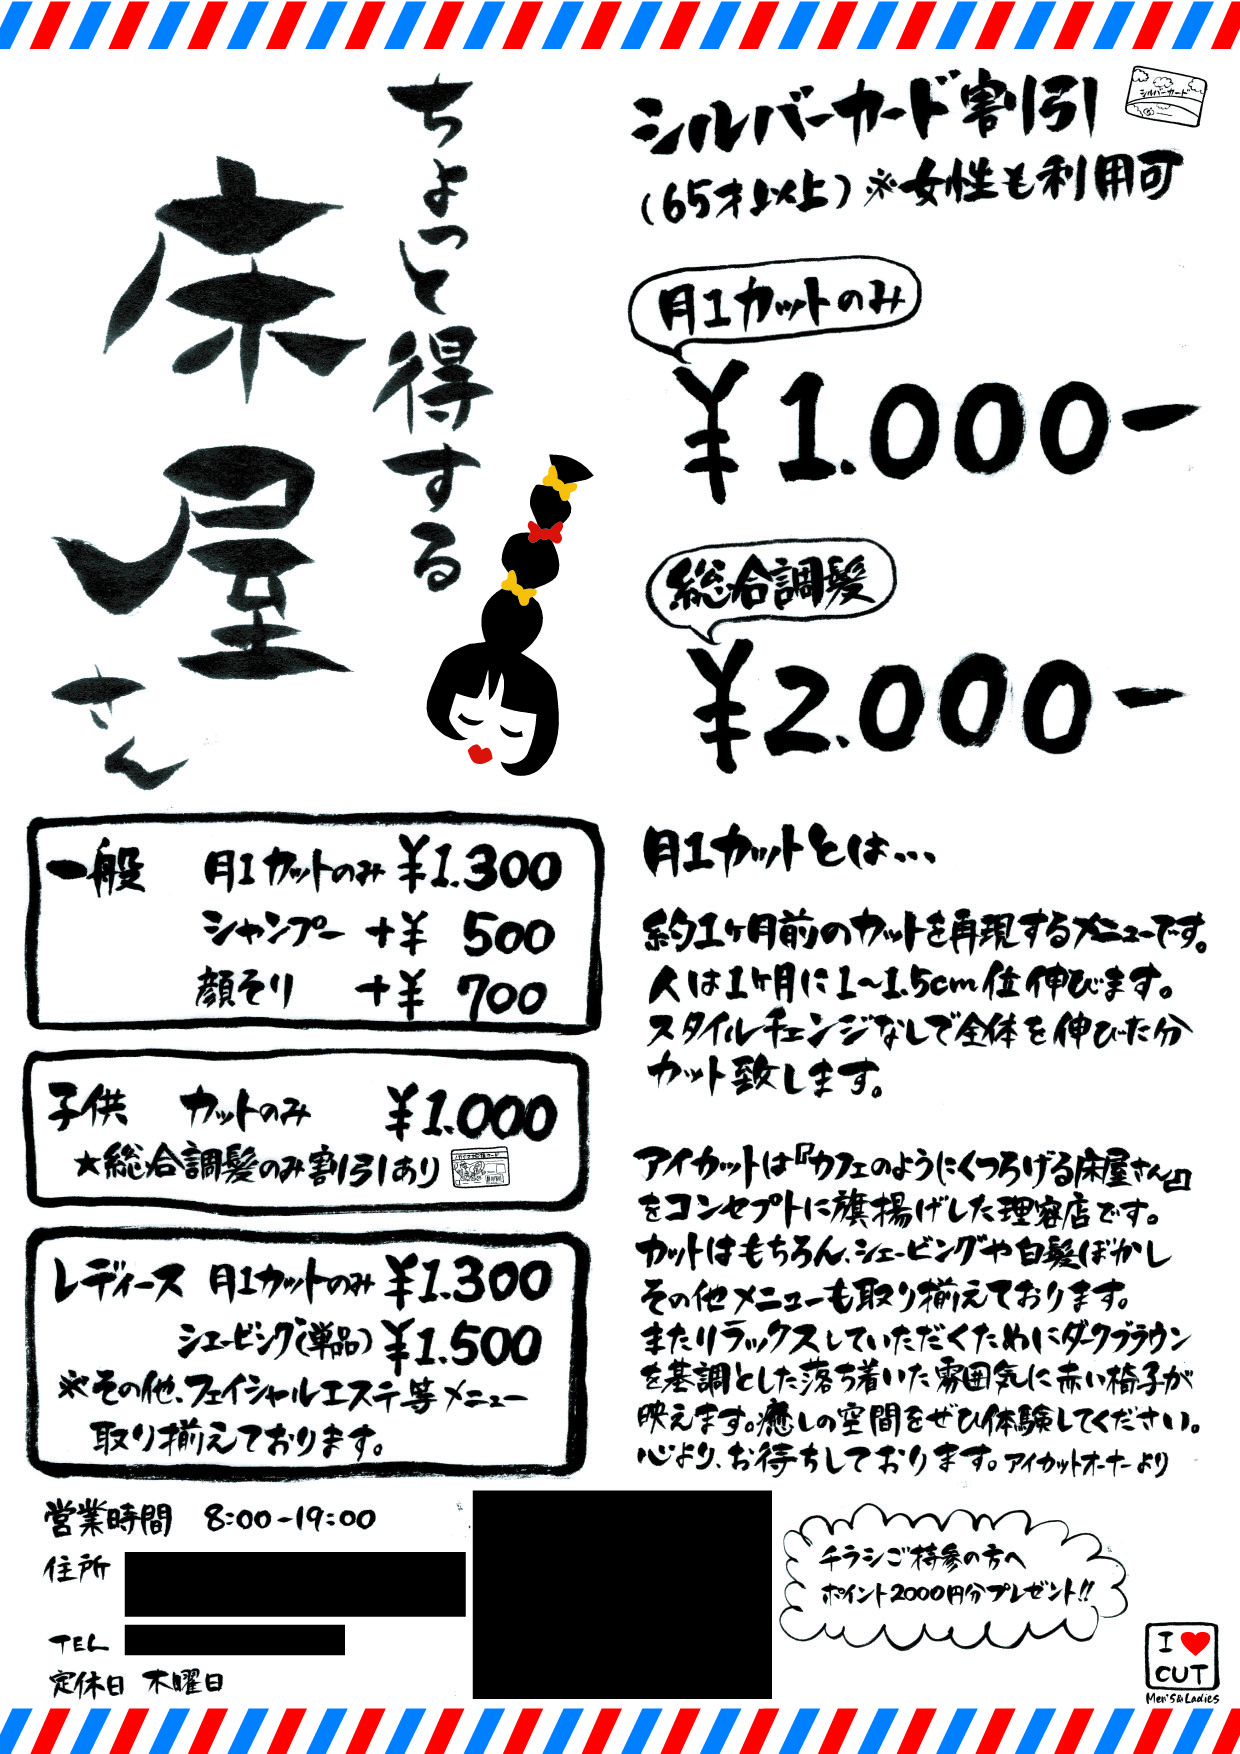 ちょっと得する
床屋
さん
シルバーカード割引
シルバーカード
(65才以上)※女性も利用可
月1カットのみ
¥1.000-
総合調髪
¥2.000-
一般 月1カットのみ ¥1.300
シャンプー +¥ 500
顔そり +¥ 700
子供 カットのみ ¥1.000
★総合調髪のみ割引あり
レディース 月1カットのみ ¥1.300
シェービング(単品) ¥1.500
※その他、フェイシャルエステ等メニュー
取り揃えております。
月1カットとは...
約1ヶ月前のカットを再現するメニューです。
人は1ヶ月に1~1.5cm位伸びます。
スタイルチェンジなしで全体を伸びた分
カット致します。
アイカットは『カフェのようにくつろげる床屋さん』
をコンセプトに旗揚げした理容店です。
カットはもちろん、シェービングや白髪ぼかし
その他メニューも取り揃えております。
またリラックスしていただくためにダークブラウン
を基調とした落ち着いた雰囲気に赤い椅子が
映えます。癒しの空間をぜひ体験してください。
心より、お待ちしております。アイカットオーナーより
営業時間 8:00-19:00
住所
TEL
定休日 木曜日
チラシご持参の方へ
ポイント2000円分プレゼント!!
I ♥
CUT
Men's&Ladies